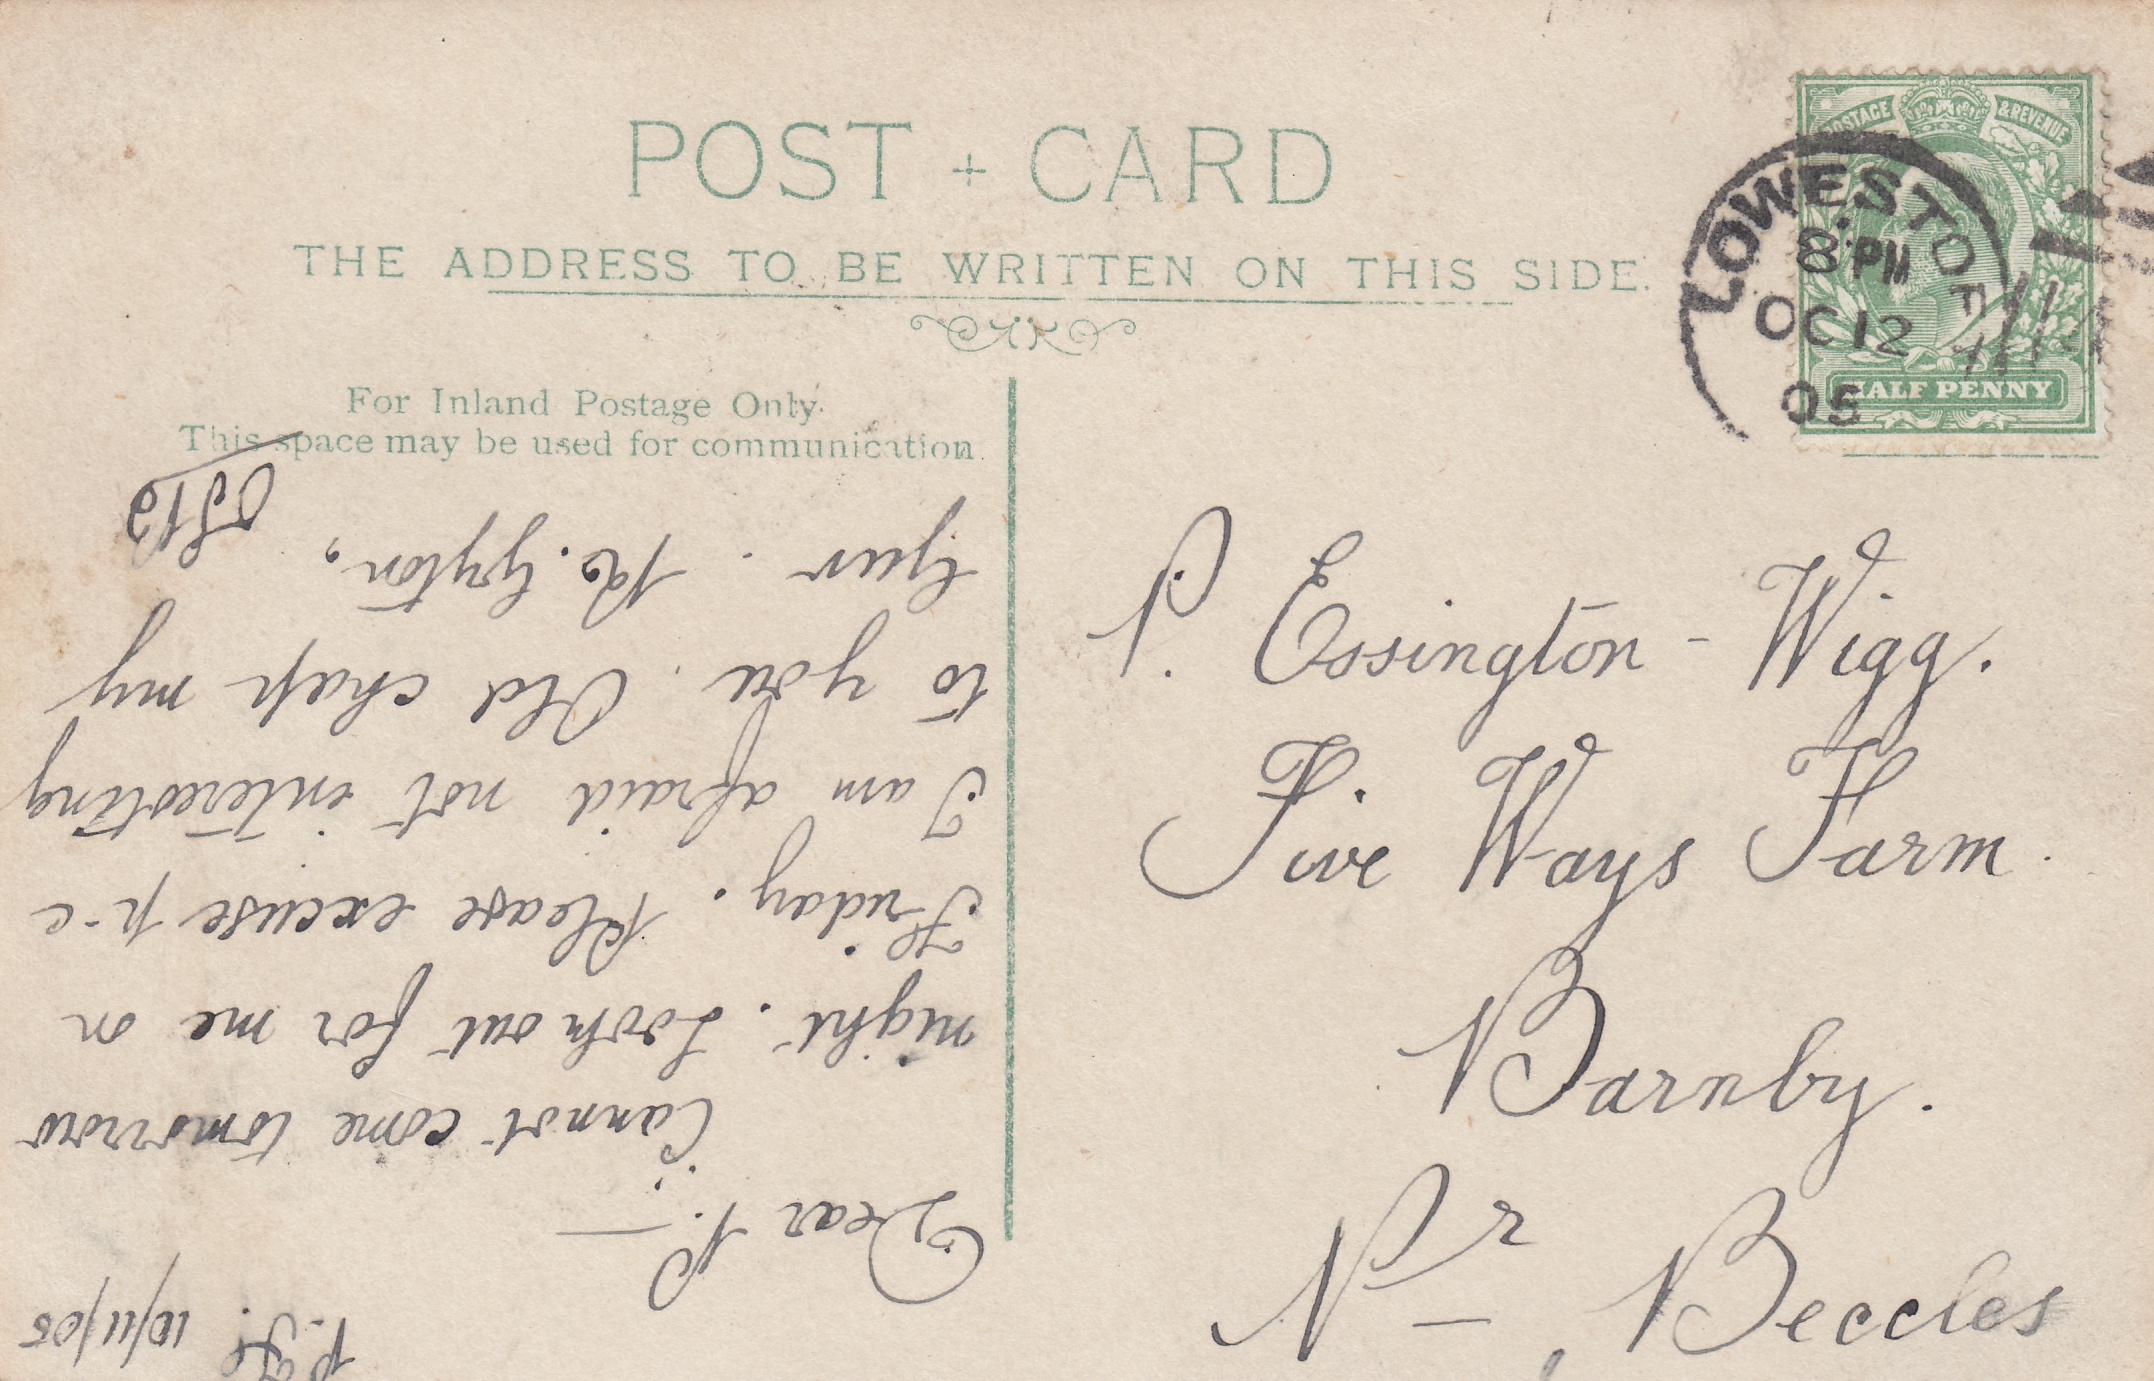 POST + CARD
THE ADDRESS TO BE WRITTEN ON THIS SIDE.
For Inland Postage Only.
This space may be used for communication
POSTAGE & REVENUE
HALF PENNY
LOWESTOFT
8 PM
OC 12
05
P. Essington - Wigg.
Five Ways Farm
Barnby.
Nr, Beccles
10/11/05
Dear P. —
Cannot come tomorrow
night. Look out for me on
Friday. Please excuse p-c
I am afraid not interesting
to you. Old chap my